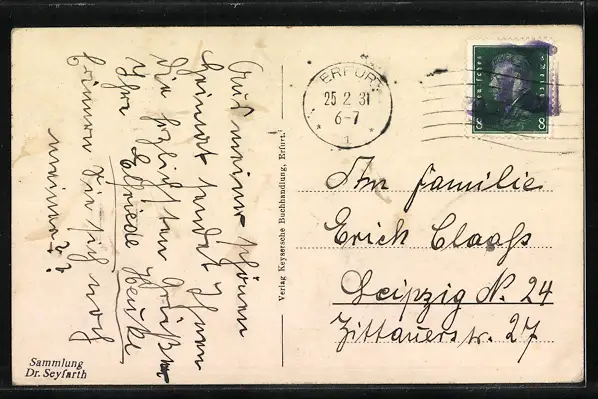 Aus meiner schönen
Heimat sendet Ihnen
die herzlichsten Grüße
Ihre Elfriede Henke
Können Sie sich noch
meiner?
Verlag Keysersche Buchhandlung, Erfurt.
Sammlung
Dr. Seyfarth
ERFURT
25 2 31
6-7
* 1 *
Deutsches Reich
8 8
An Familie
Erich Claaß
Leipzig N. 24
Zittauerstr. 27